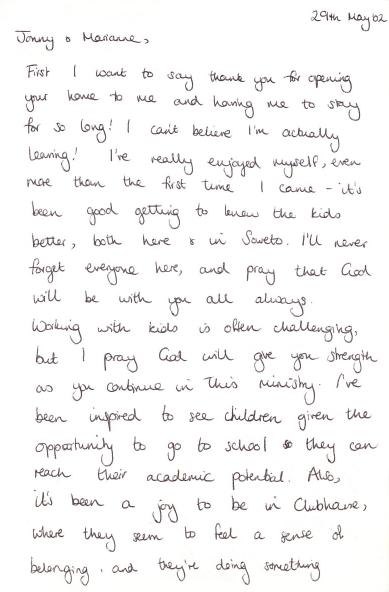 29th May 02
Jonny & Marianne,
First I want to say thank you for opening
your home to me and having me to stay
for so long! I can't believe I'm actually
leaving! I've really enjoyed myself, even
more than the first time I came - it's
been good getting to know the kids
better, both here & in Soweto. I'll never
forget everyone here, and pray that God
will be with you all always.
Working with kids is often challenging,
but I pray God will give you strength
as you continue in this ministry. I've
been inspired to see children given the
opportunity to go to school so they can
reach their academic potential. Also,
it's been a joy to be in Clubhouse,
where they seem to feel a sense of
belonging. and they're doing something